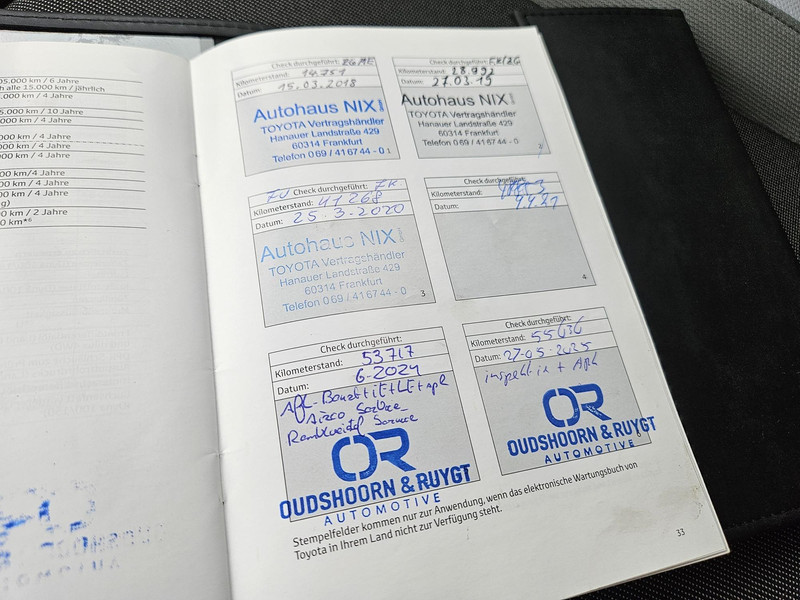 05.000 km / 6 Jahre
h alle 15.000 km / jährlich
.000 km / 4 Jahre
5.000 km / 10 Jahre
000 km / 4 Jahre
000 km / 4 Jahre
000 km / 4 Jahre
000 km / 4 Jahre
km/4 Jahre
000 km / 4 Jahre
g)
00 km / 2 Jahre
0 km*⁶
Check durchgeführt:
Kilometerstand: 14.751
Datum: 15.03.2018
Autohaus NIX GmbH
TOYOTA Vertragshändler
Hanauer Landstraße 429
60314 Frankfurt
Telefon 0 69 / 41 67 44 - 0 1
Check durchgeführt:
Kilometerstand: 28.992
Datum: 27.03.19
Autohaus NIX
TOYOTA Vertragshändler
Hanauer Landstraße 429
60314 Frankfurt
Telefon 0 69 / 41 67 44 - 0 2
Check durchgeführt:
Kilometerstand: 41268
Datum: 25.3.2020
Autohaus NIX GmbH
TOYOTA Vertragshändler
Hanauer Landstraße 429
60314 Frankfurt
Telefon 0 69 / 41 67 44 - 0 3
Check durchgeführt:
Kilometerstand:
Datum: 9.4.21
4
Check durchgeführt:
Kilometerstand: 53717
Datum: 6-2024
OR
OUDSHOORN & RUYGT
AUTOMOTIVE
Check durchgeführt:
Kilometerstand: 55636
Datum: 27-05-2025
inspektie + Apk
OR
OUDSHOORN & RUYGT
AUTOMOTIVE 6
Stempelfelder kommen nur zur Anwendung, wenn das elektronische Wartungsbuch von
Toyota in Ihrem Land nicht zur Verfügung steht.
33